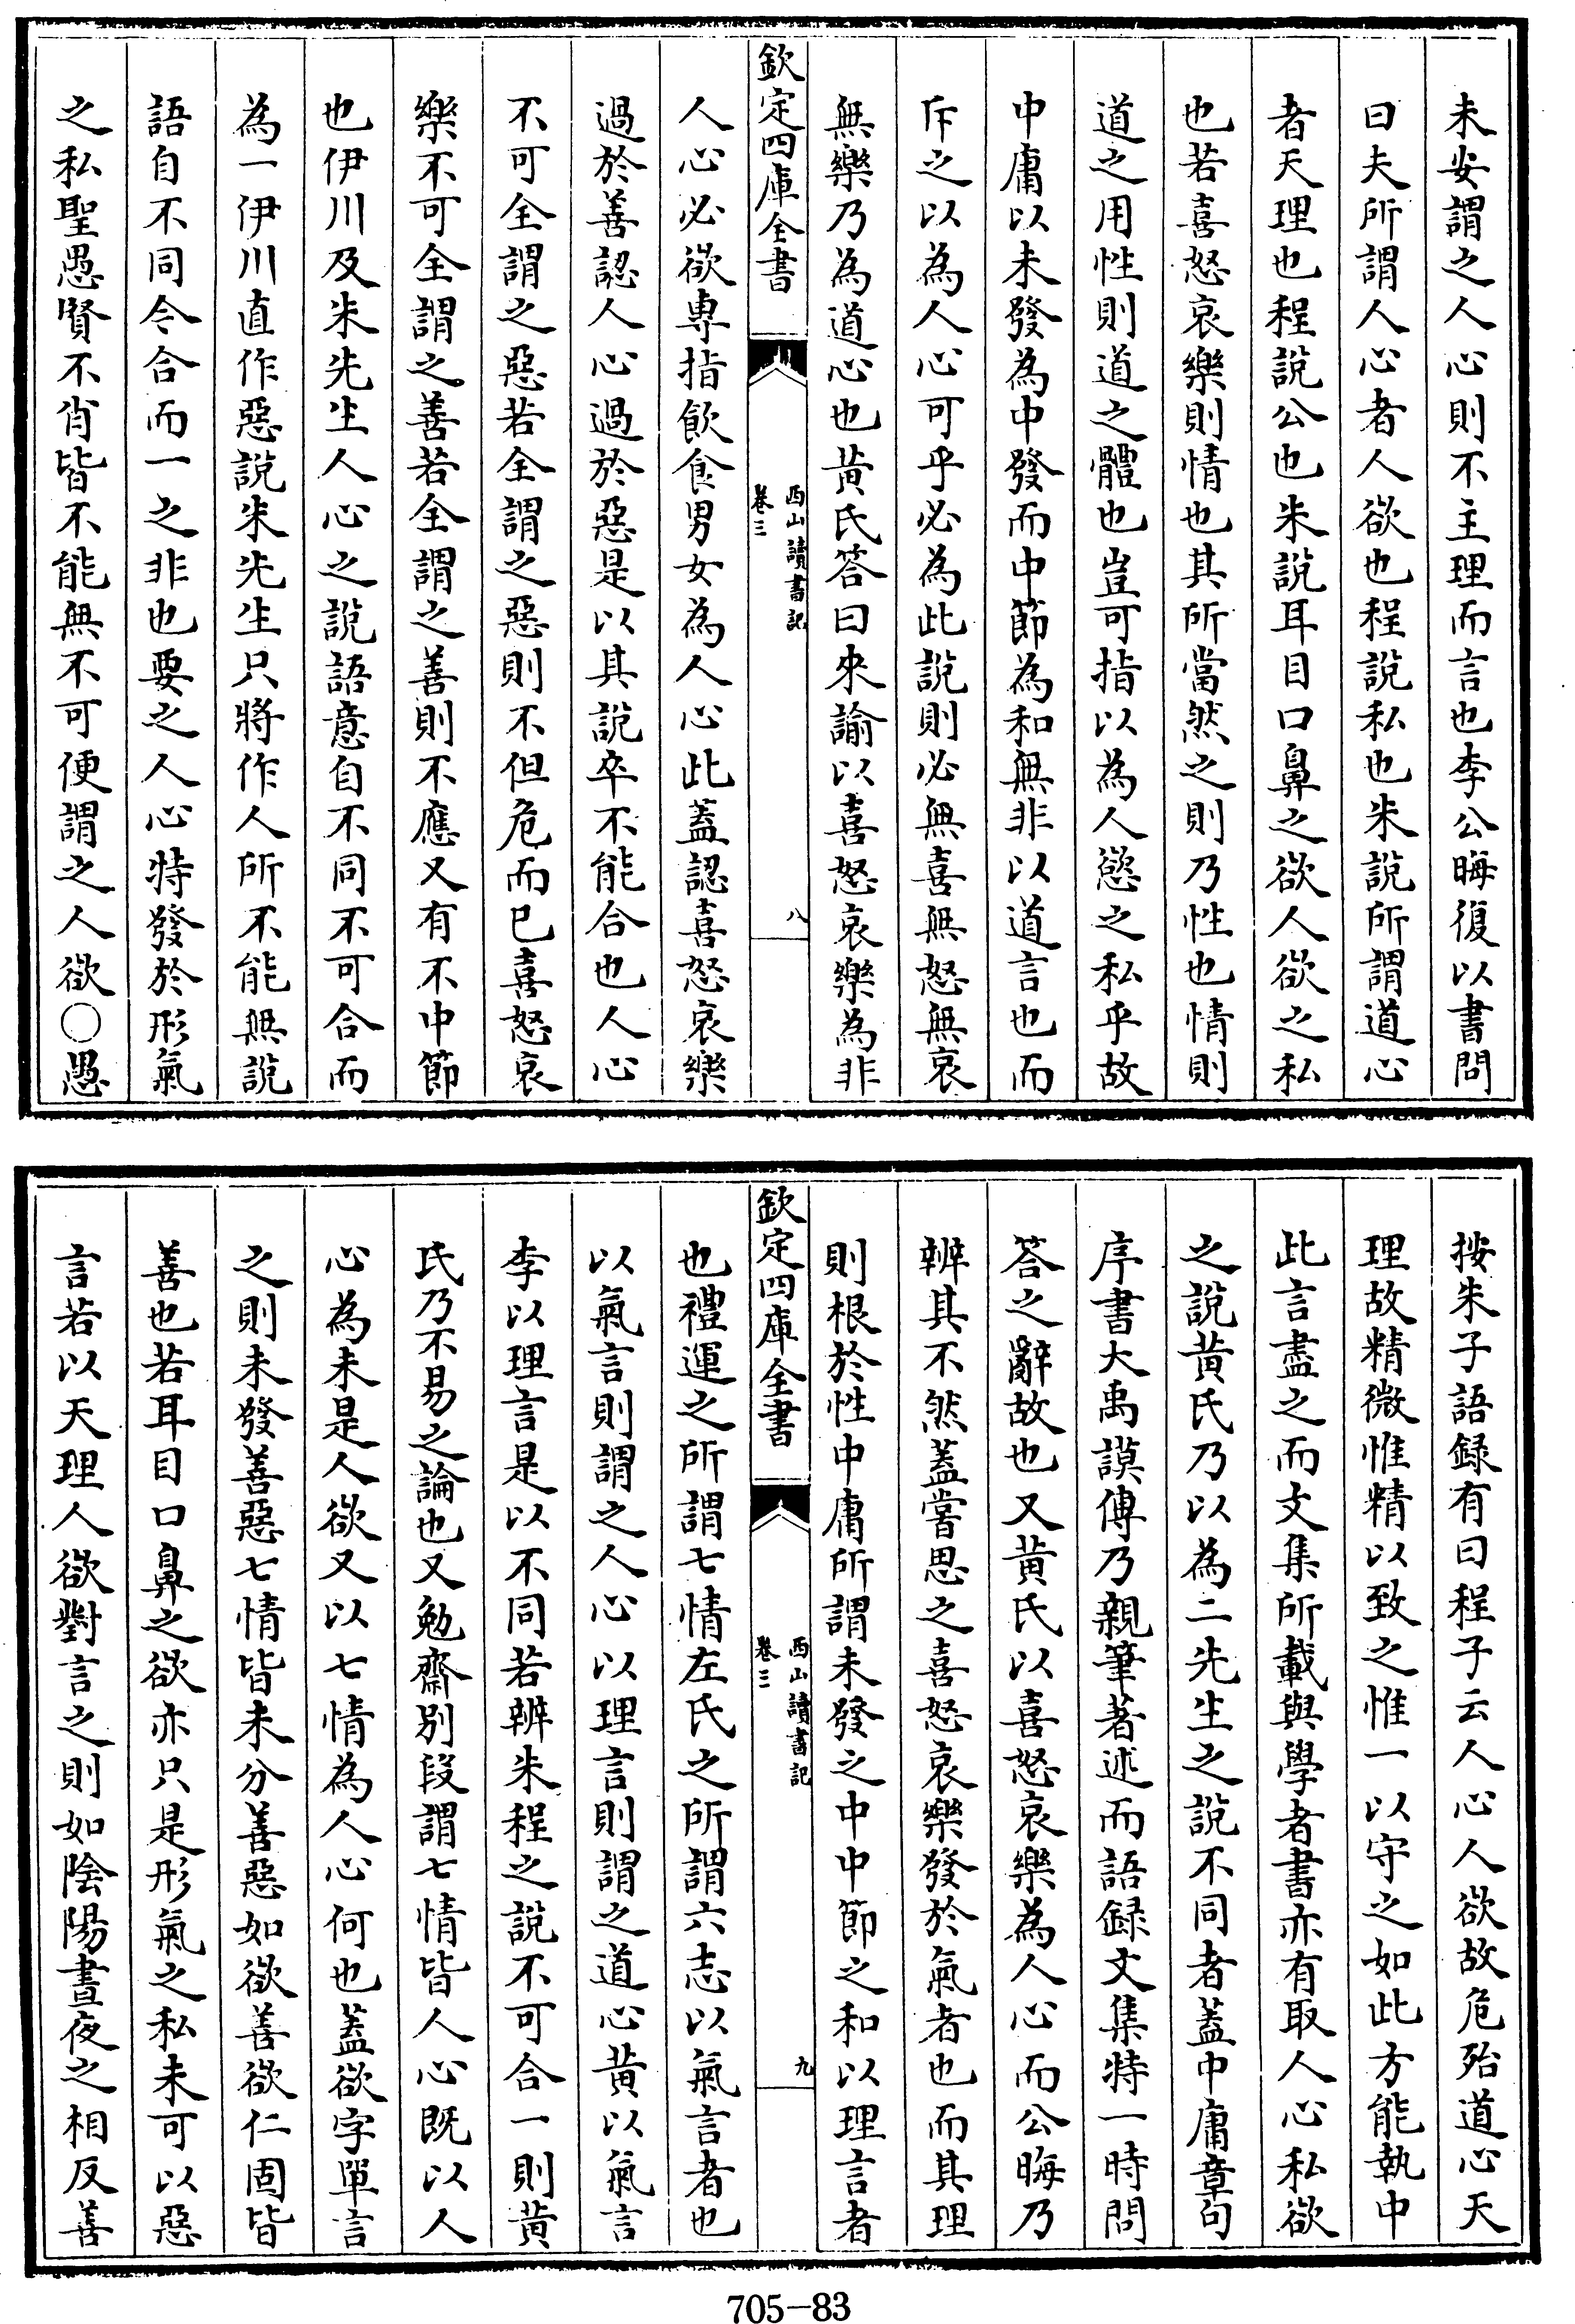 未安謂之人心則不主理而言也李公晦復以書問
曰夫所謂人心者人欲也程說私也朱說所謂道心
者天理也程說公也朱說耳目口鼻之欲人欲之私
也若喜怒哀樂則情也其所當然之則乃性也情則
道之用性則道之體也豈可指以為人慾之私乎故
中庸以未發為中發而中節為和無非以道言也而
斥之以為人心可乎必為此說則必無喜無怒無哀
無樂乃為道心也黃氏答曰來諭以喜怒哀樂為非
欽定四庫全書
西山讀書記
卷三
八
人心必欲專指飲食男女為人心此蓋認喜怒哀樂
過於善認人心過於惡是以其說卒不能合也人心
不可全謂之惡若全謂之惡則不但危而已喜怒哀
樂不可全謂之善若全謂之善則不應又有不中節
也伊川及朱先生人心之說語意自不同不可合而
為一伊川直作惡說朱先生只將作人所不能無說
語自不同今合而一之非也要之人心特發於形氣
之私聖愚賢不肖皆不能無不可便謂之人欲〇愚
按朱子語録有曰程子云人心人欲故危殆道心天
理故精微惟精以致之惟一以守之如此方能執中
此言盡之而文集所載與學者書亦有取人心私欲
之說黃氏乃以為二先生之說不同者蓋中庸章句
序書大禹謨傳乃親筆著述而語録文集特一時問
答之辭故也又黃氏以喜怒哀樂為人心而公晦乃
辨其不然蓋嘗思之喜怒哀樂發於氣者也而其理
則根於性中庸所謂未發之中中節之和以理言者
欽定四庫全書
西山讀書記
卷三
九
也禮運之所謂七情左氏之所謂六志以氣言者也
以氣言則謂之人心以理言則謂之道心黃以氣言
李以理言是以不同若辨朱程之說不可合一則黃
氏乃不易之論也又勉齋別段謂七情皆人心既以人
心為未是人欲又以七情為人心何也蓋欲字單言
之則未發善惡七情皆未分善惡如欲善欲仁固皆
善也若耳目口鼻之欲亦只是形氣之私未可以惡
言若以天理人欲對言之則如陰陽晝夜之相反善
705-83